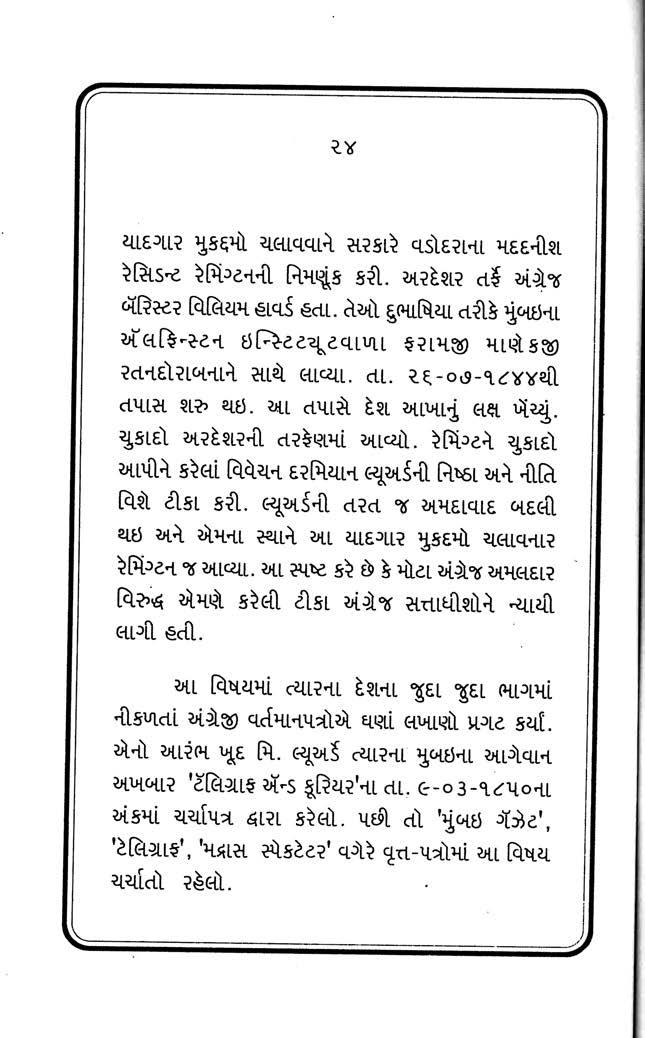 ૨૪
યાદગાર મુકદ્દમો ચલાવવાને સરકારે વડોદરાના મદદનીશ
રેસિડન્ટ રેમિંગ્ટનની નિમણૂંક કરી. અરદેશર તર્ફે અંગ્રેજ
બૅરિસ્ટર વિલિયમ હાવર્ડ હતા. તેઓ દુભાષિયા તરીકે મુંબઇના
ઍલફિન્સ્ટન ઇન્સ્ટિટચૂટવાળા ફરામજી માણેકજી
રતનદોરાબનાને સાથે લાવ્યા. તા. ૨૬-૦૭-૧૮૪૪થી
તપાસ શરુ થઇ. આ તપાસે દેશ આખાનું લક્ષ ખેંચ્યું.
ચુકાદો અરદેશરની તરફેણમાં આવ્યો. રેમિંગ્ટને ચુકાદો
આપીને કરેલાં વિવેચન દરમિયાન લ્યૂઅર્ડની નિષ્ઠા અને નીતિ
વિશે ટીકા કરી. લ્યૂઅર્ડની તરત જ અમદાવાદ બદલી
થઇ અને એમના સ્થાને આ યાદગાર મુકદમો ચલાવનાર
રેમિંગ્ટન જ આવ્યા. આ સ્પષ્ટ કરે છે કે મોટા અંગ્રેજ અમલદાર
વિરુદ્ધ એમણે કરેલી ટીકા અંગ્રેજ સત્તાધીશોને ન્યાયી
લાગી હતી.
આ વિષયમાં ત્યારના દેશના જુદા જુદા ભાગમાં
નીકળતાં અંગ્રેજી વર્તમાનપત્રોએ ઘણાં લખાણો પ્રગટ કર્યાં.
એનો આરંભ ખૂદ મિ. લ્યૂઅર્ડે ત્યારના મુબઇના આગેવાન
અખબાર 'ટૅલિગ્રાફ ઍન્ડ કૂરિયર'ના તા. ૯-૦૩-૧૮૫૦ના
અંકમાં ચર્ચાપત્ર દ્વારા કરેલો. પછી તો 'મુંબઇ ગૅઝેટ',
'ટેલિગ્રાફ', 'મદ્રાસ સ્પેકટેટર' વગેરે વૃત્ત-પત્રોમાં આ વિષય
ચર્ચાતો રહેલો.